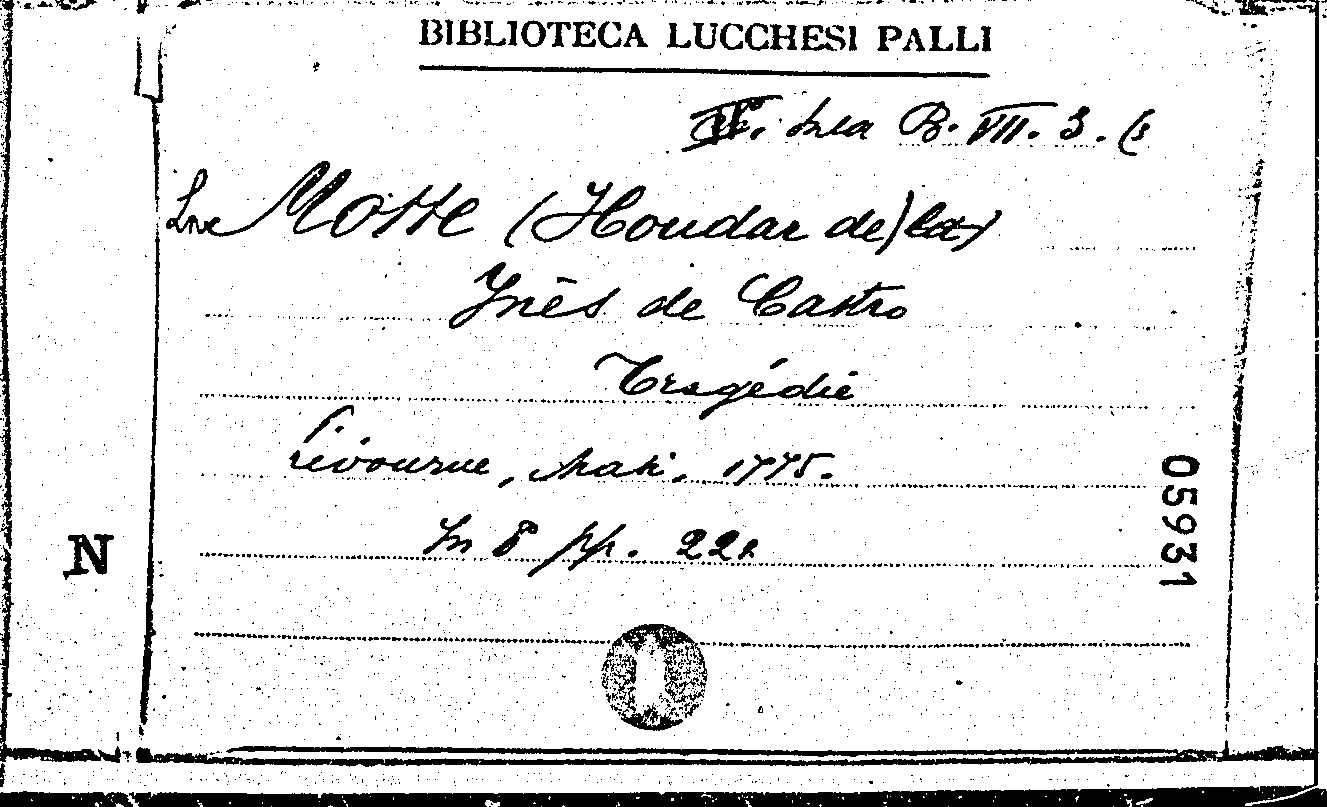 BIBLIOTECA LUCCHESI PALLI
Sala B. VII. 3. (5
La Motte (Houdar de) la)
Inès de Castro
Tragédie
Livourne, 1775.
In 8° pp.
05931
N